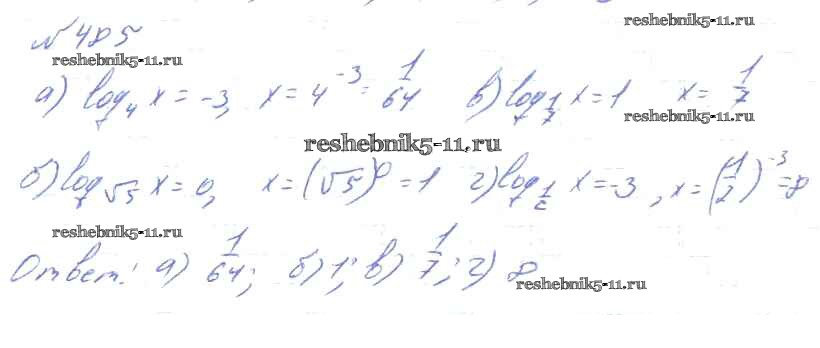 reshebnik5-11.ru
№485
reshebnik5-11.ru
а) log₄ x = -3, x = 4⁻³ = 1/64 в) log_{1/7} x = 1 x = 1/7
reshebnik5-11.ru
reshebnik5-11.ru
б) log_{√5} x = 0, x = (√5)⁰ = 1 г) log_{1/2} x = -3, x = (1/2)⁻³ = 8
reshebnik5-11.ru
Ответ: а) 1/64; б) 1; в) 1/7; г) 8
reshebnik5-11.ru